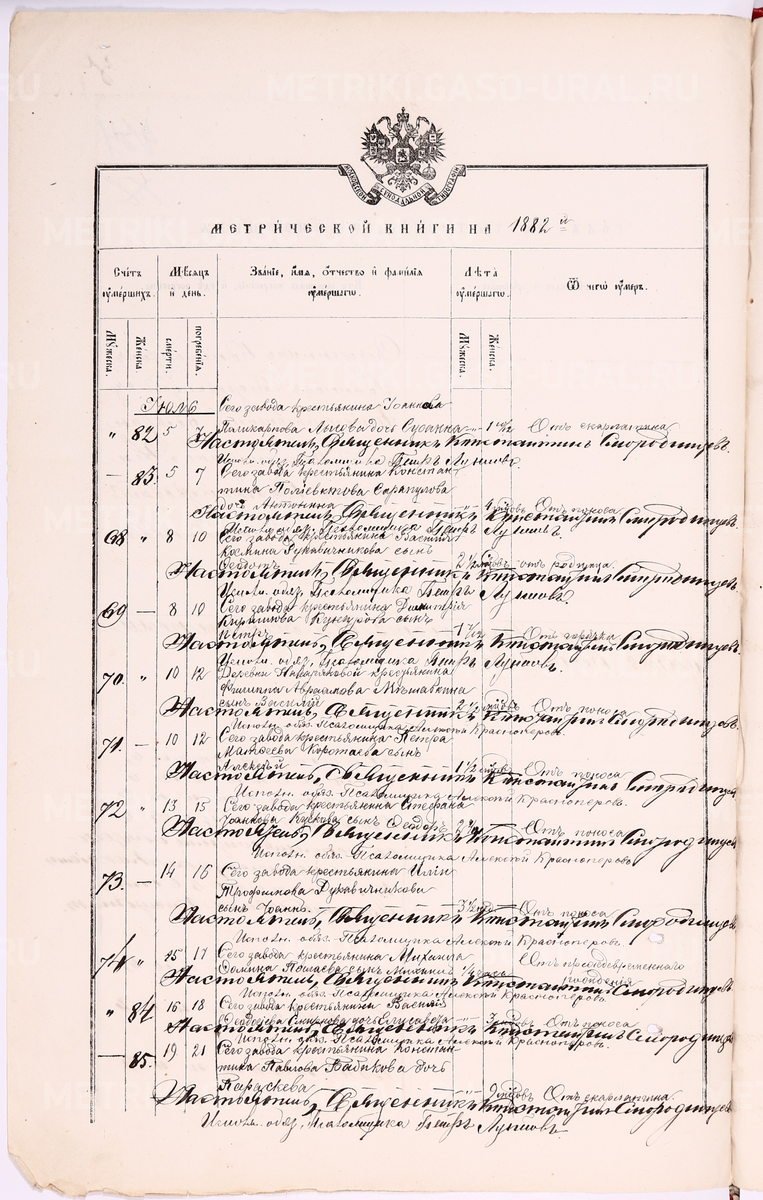 METRIKI.GASO-URAL.RU
МОСКОВСКОЙ СѴНОДАЛЬНОЙ ТИПОГРАФІИ
МЕТРИ́ЧЕСКОЙ КНИ́ГИ НА 1882 й
Счетъ ᲂумершихъ.
Мѣсяцъ и день.
Званіе, имя, отчество и фамилія ᲂумершагѡ.
Лѣта ᲂумершагѡ.
Ѿ чегѡ ᲂумеръ.
Мꙋжеска. Женска. смерти. погребенія. Мꙋжеска. Женска.
Іюль Сего завода крестьянина Іоанна
" 82 5 7 Поликарпова дочь Сусанна Отъ скарлатина
Настоятель, Священникъ Константинъ Смородинцевъ.
Псаломщика Петръ Лупповъ
— 83. 5 7 Сего завода крестьянина Констан-
тина Поліевктова Сарапулова
дочь Антонина Отъ поноса
Настоятель, Священникъ Константинъ Смородинцевъ.
Исполн. обяз. Псаломщика Петръ Лупповъ.
68 " 8 10 Сего завода крестьянина Василія
Космина Рукавичникова сынъ
Ѳеодотъ 2 1/2 отъ родимца.
Настоятель, Священникъ Константинъ Смородинцевъ.
Исполн. обяз. Псаломщика Петръ Лупповъ.
69 — 8 10 Сего завода крестьянина Димитрія
Кириллова сынъ
Петръ Отъ горячки
Настоятель, Священникъ Константинъ Смородинцевъ
Исполн. обяз. Псаломщика Петръ Лупповъ.
70. " 10 12 Деревни крестьянина
Филиппа сынъ Василій Отъ поноса
Настоятель, Священникъ Константинъ Смородинцевъ.
Исполн. обяз. Псаломщика Алексѣй Красноперовъ.
71. — 10 12 Сего завода крестьянина Петра
Матѳеева Коротаева сынъ
Алексѣй 1 1/2 Отъ поноса
Настоятель, Священникъ Константинъ Смородинцевъ
Исполн. обяз. Псаломщика Алексѣй Красноперовъ.
72 " 13 15 Сего завода крестьянина Стефана
Іоаннова сынъ Ѳеодоръ Отъ поноса
Настоятель, Священникъ Константинъ Смородинцевъ
Исполн. обяз. Псаломщика Алексѣй Красноперовъ
73. — 14 16 Сего завода крестьянина Иліи
Трофимова Рукавичникова
сынъ Іоаннъ 3 1/2 Отъ поноса
Настоятель, Священникъ Константинъ Смородинцевъ
Исполн. обяз. Псаломщика Алексѣй Красноперовъ
74 " 15 17 Сего завода крестьянина Михаила
сынъ Михаилъ Отъ преждевременнаго рожденія
Настоятель, Священникъ Константинъ Смородинцевъ
Исполн. обяз. Псаломщика Алексѣй Красноперовъ
" 84 16 18 Сего завода крестьянина Василія
Смирнова дочь Елисавета Отъ поноса
Настоятель, Священникъ Константинъ Смородинцевъ
Исполн. обяз. Псаломщика Алексѣй Красноперовъ.
— 85. 19 21 Сего завода крестьянина Констан-
тина Павлова Бабикова дочь
Параскева Отъ скарлатина.
Настоятель, Священникъ Константинъ Смородинцевъ
Исполн. обяз. Псаломщика Петръ Лупповъ